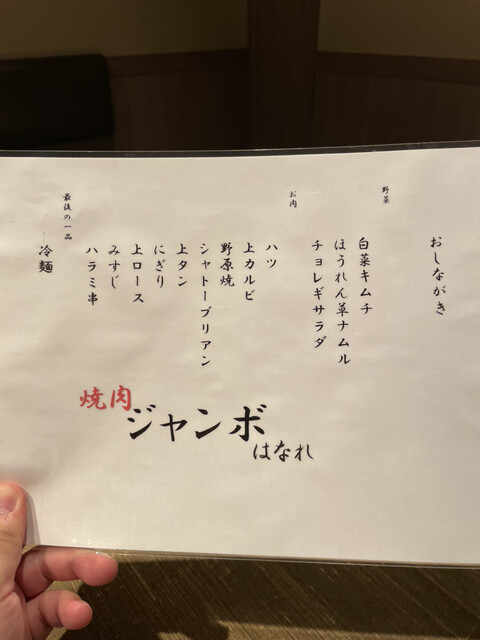 おしながき
野菜
白菜キムチ
ほうれん草ナムル
チョレギサラダ
お肉
ハツ
上カルビ
野原焼
シャトーブリアン
上タン
にぎり
上ロース
みすじ
ハラミ串
最後の一品
冷麺
焼肉
ジャンボ
はなれ